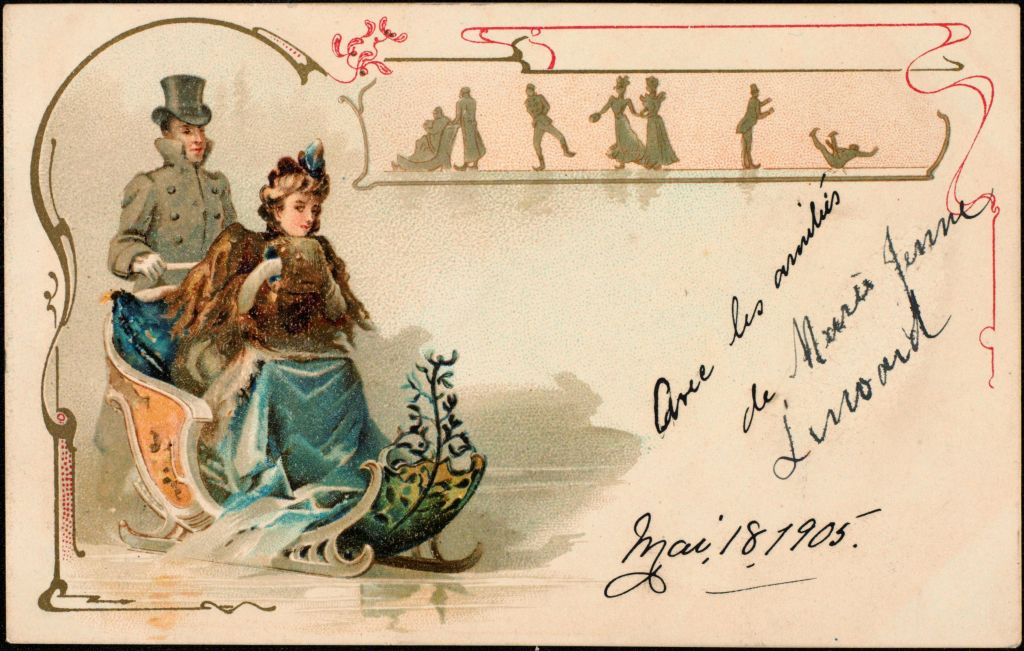 Avec les amitiés
de Marie Jenne
Mai, 18, 1905.